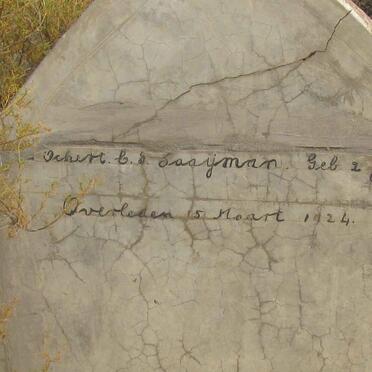 Ochert. C. J. Saayman. Geb 2
Overleden 15 Maart 1924.